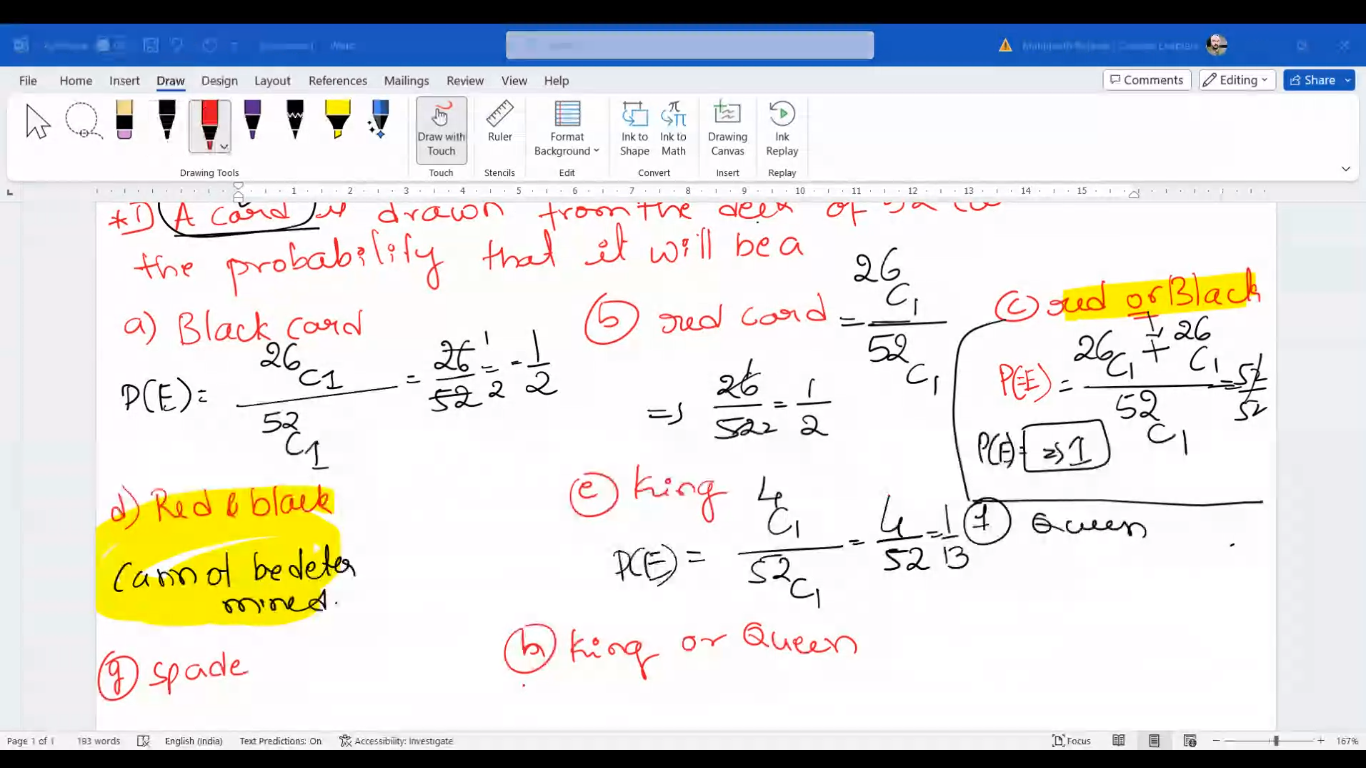 File Home Insert Draw Design Layout References Mailings Review View Help
Comments Editing Share
Draw with Touch
Ruler
Format Background
Ink to Shape
Ink to Math
Drawing Canvas
Ink Replay
Drawing Tools Touch Stencils Edit Convert Insert Replay
1 2 3 4 5 6 7 8 9 10 11 12 13 14 15
*1) A card is drawn from the deck of 52
the probability that it will be a
a) Black card
P(E) = 26C1 / 52C1 = 26/52 = 1/2 = 1/2
b) red card = 26C1 / 52C1
=> 26/52 = 1/2
c) red or Black
+
P(E) = 26C1 + 26C1 / 52C1 = 52/52
P(E) = => 1
d) Red & black
Cannot be deter
mined.
e) King
P(E) = 4C1 / 52C1 = 4/52 = 1/13
f Queen
g) spade
h King or Queen
Page 1 of 1 193 words English (India) Text Predictions: On Accessibility: Investigate Focus 167%